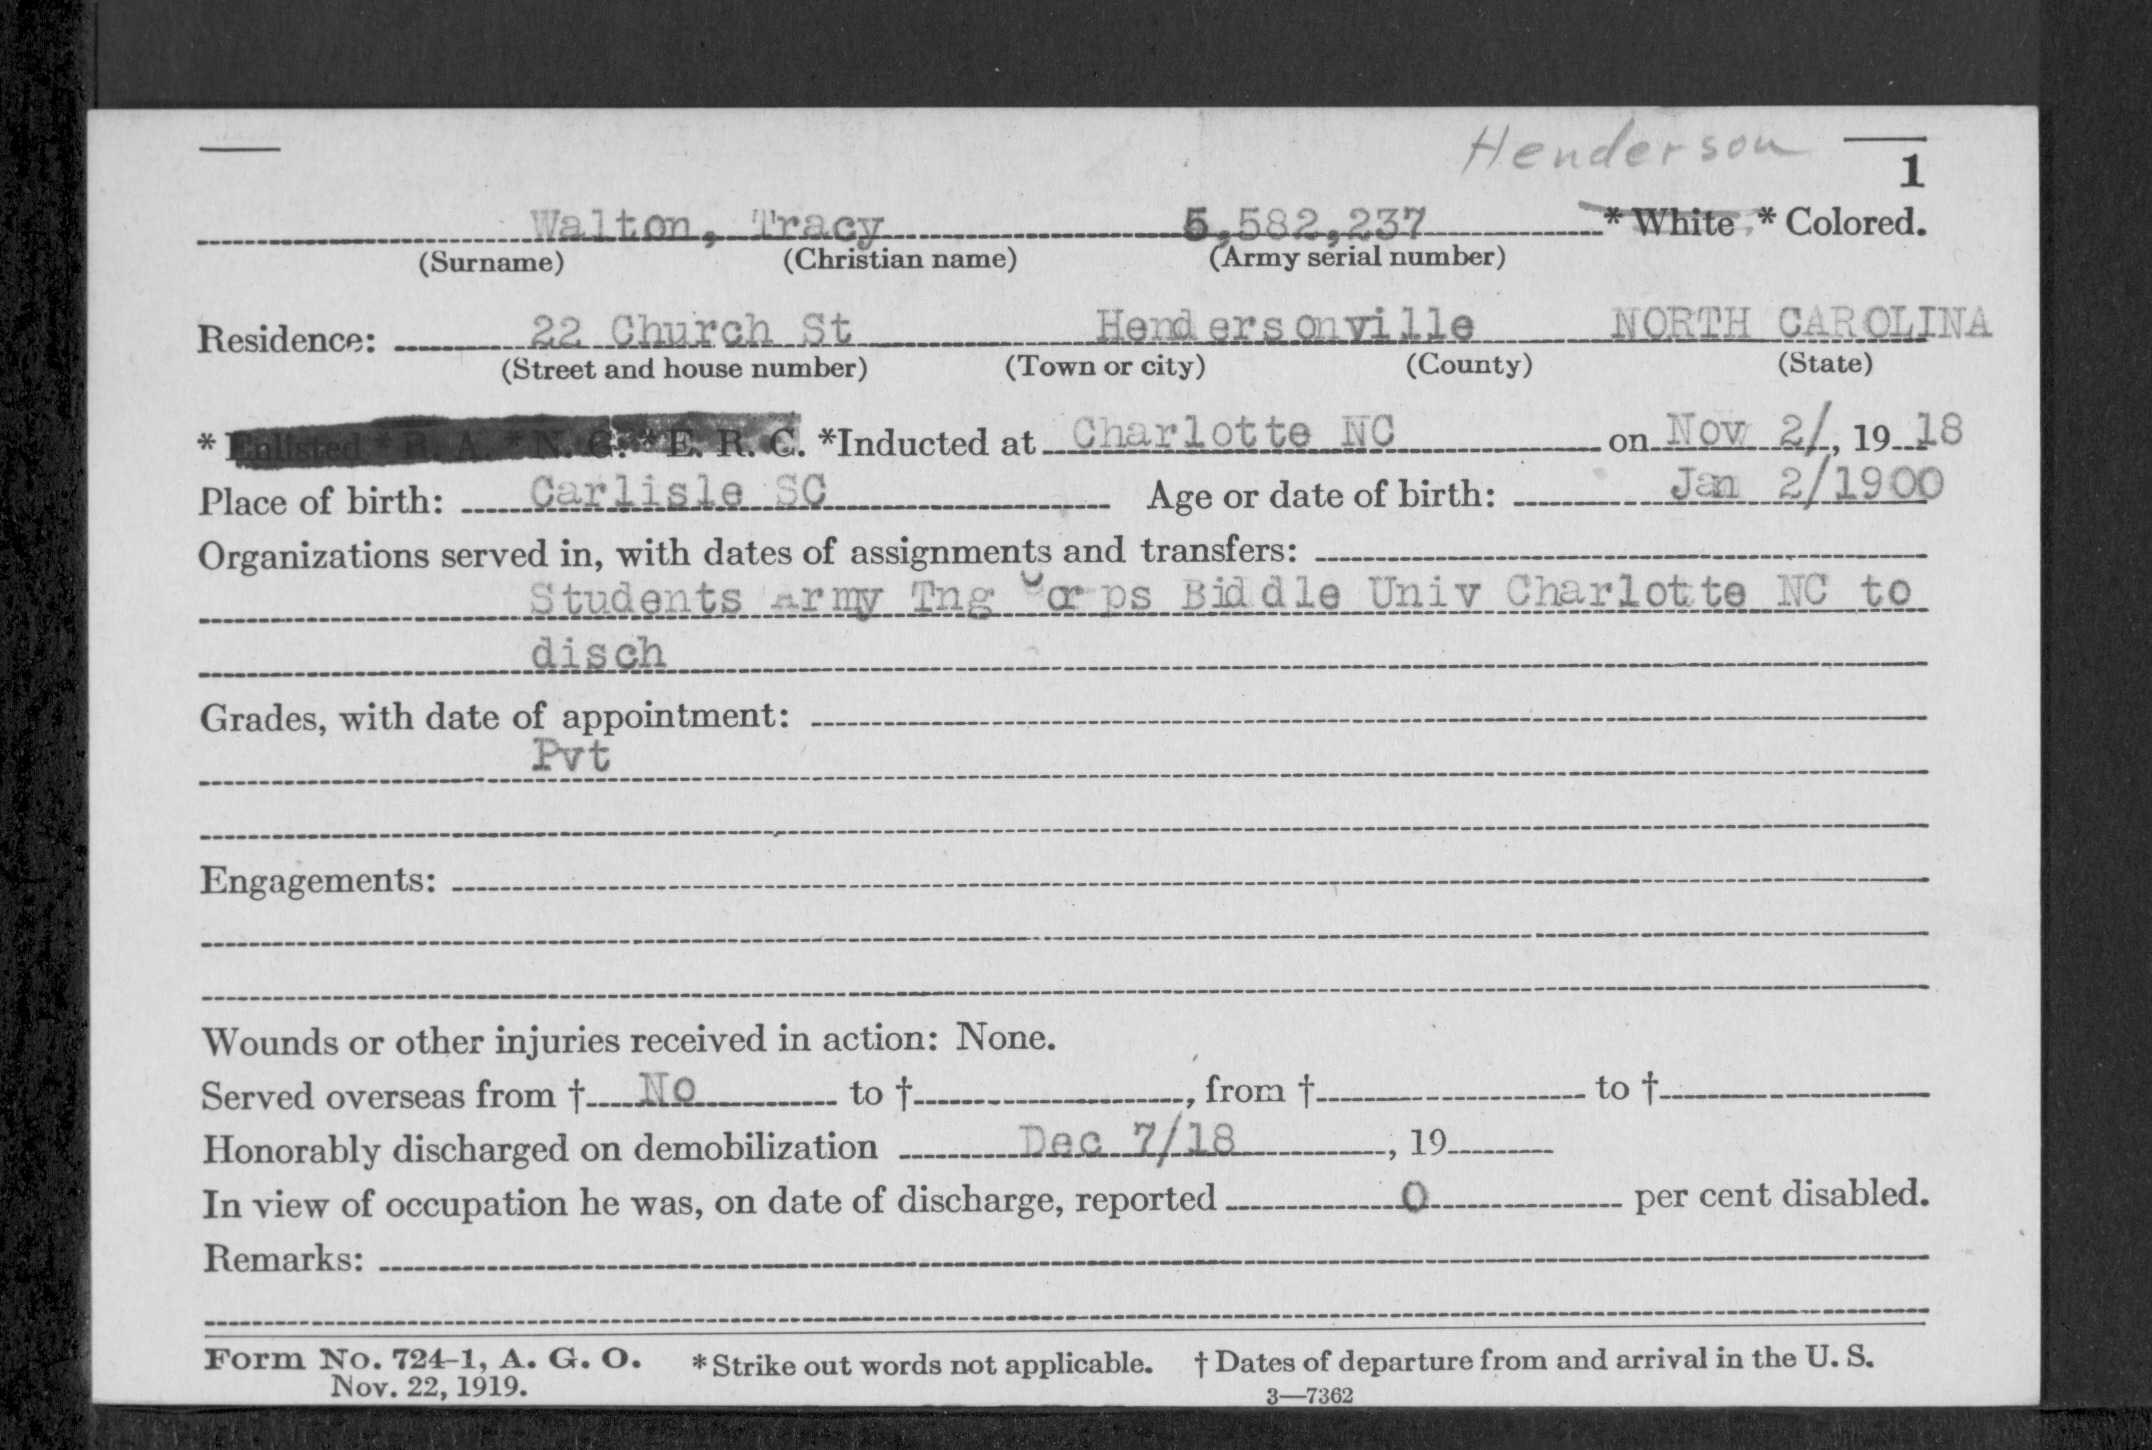 Henderson
1
Walton, Tracy 5,582,237 * White * Colored.
(Surname) (Christian name) (Army serial number)
Residence: 22 Church St Hendersonville NORTH CAROLINA
(Street and house number) (Town or city) (County) (State)
* Enlisted * R. A. * N. G. * E. R. C. *Inducted at Charlotte NC on Nov 2/, 19 18
Place of birth: Carlisle SC Age or date of birth: Jan 2/1900
Organizations served in, with dates of assignments and transfers:
Students Army Tng Corps Biddle Univ Charlotte NC to
disch
Grades, with date of appointment:
Pvt
Engagements:
Wounds or other injuries received in action: None.
Served overseas from † No to †, from † to †
Honorably discharged on demobilization Dec 7/18, 19
In view of occupation he was, on date of discharge, reported 0 per cent disabled.
Remarks:
Form No. 724-1, A. G. O. * Strike out words not applicable. † Dates of departure from and arrival in the U. S.
Nov. 22, 1919. 3—7362